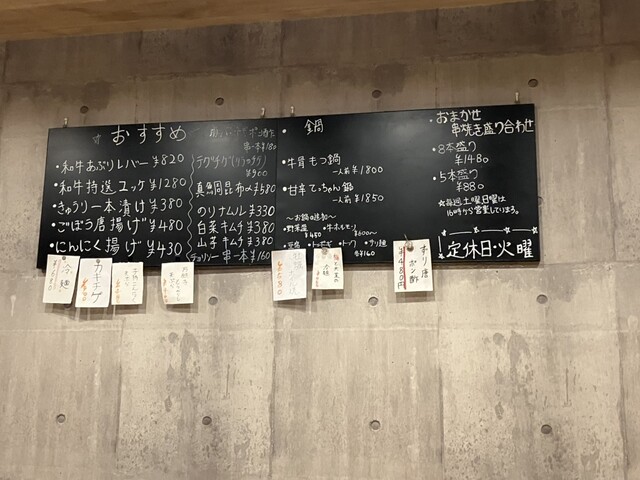 おすすめ
・和牛あぶりレバー ¥820
・和牛特選ユッケ ¥1280
・きゅうり一本漬け ¥380
・ごぼう唐揚げ ¥480
・にんにく揚げ ¥430
¥900
真鯛昆布〆 ¥580
のりナムル ¥330
白菜キムチ ¥380
山芋キムチ ¥380
チョリソー串一本 ¥160
鍋
・牛骨もつ鍋
一人前 ¥1800
・甘辛てっちゃん鍋
一人前 ¥1850
〜お鍋の追加〜
・野菜盛 ¥450
・牛ホルモン ¥600〜
・豆腐 ・トッポギ ・トック ・サリ麺
各¥160
おまかせ
串焼き盛り合わせ
・8本盛り
¥1480
・5本盛り
¥880
☆毎週土曜日曜は
16時から営業しています。
定休日・火曜
冷麺
カキチゲ
すり唐
ポン酢
¥480円